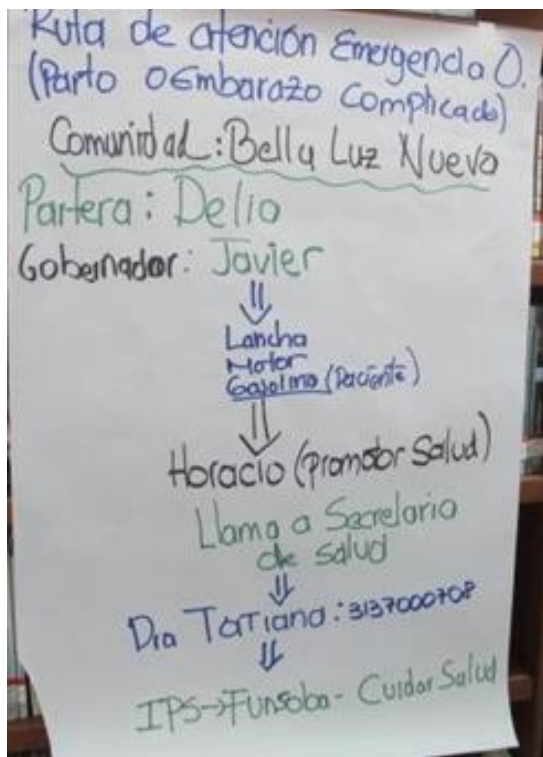 Ruta de atención Emergencia O.
(Parto o Embarazo Complicado)
Comunidad: Bella Luz Nuevo
Partera: Delio
Gobernador: Javier
⇓
Lancha
Motor
Gasolina (Paciente)
⇓
Horacio (Promotor Salud)
Llama a Secretaria
de salud
⇓
Dra Tatiana: 3137000708
⇓
IPS→Funsoba - Cuidar Salud